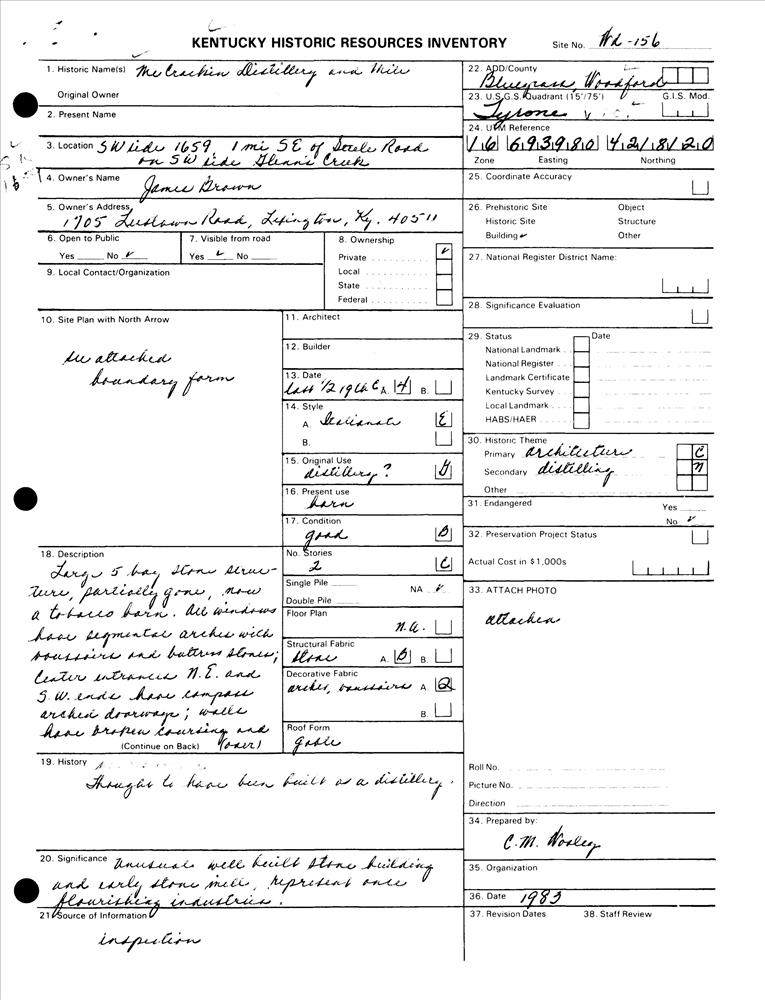 KENTUCKY HISTORIC RESOURCES INVENTORY
Site No. Wd-156
1. Historic Name(s) McCracken Distillery and Mill
Original Owner
2. Present Name
3. Location SW side 1659, 1 mi SE of Steele Road
on SW side Glenn's Creek
4. Owner's Name James Brown
5. Owner's Address 1705 Leestown Road, Lexington, Ky. 40511
6. Open to Public
Yes No ✓
7. Visible from road
Yes ✓ No
8. Ownership
Private ✓
Local
State
Federal
9. Local Contact/Organization
10. Site Plan with North Arrow
see attached
boundary form
11. Architect
12. Builder
13. Date
last 1/2 19th C A. 4 B.
14. Style
A. Italianate E
B.
15. Original Use
distillery?
16. Present use
barn
17. Condition
good B
No. Stories
2 C
Single Pile
NA ✓
Double Pile
Floor Plan
N.A.
Structural Fabric
stone A. B B.
Decorative Fabric
arches, voussoirs A. 2
B.
Roof Form
gable
18. Description
Large 5 bay stone struc-
ture, partially gone, now
a tobacco barn. All windows
have segmental arches with
voussoirs and buttress stones;
Center entrances N.E. and
S.W. ends have compass
arched doorways; walls
have broken coursing and
(Continue on Back) (over)
19. History
Thought to have been built as a distillery.
20. Significance Unusual well built stone building
and early stone mill, represent once
flourishing industries.
21 Source of Information
inspection
22. ADD/County
Bluegrass, Woodford
23. U.S.G.S. Quadrant (15'/75') G.I.S. Mod.
Tyrone
24. UTM Reference
16 693980 4218120
Zone Easting Northing
25. Coordinate Accuracy
26. Prehistoric Site Object
Historic Site Structure
Building ✓ Other
27. National Register District Name:
28. Significance Evaluation
29. Status Date
National Landmark
National Register
Landmark Certificate
Kentucky Survey
Local Landmark
HABS/HAER
30. Historic Theme
Primary architecture C
Secondary distilling N
Other
31. Endangered Yes
No ✓
32. Preservation Project Status
Actual Cost in $1,000s
33. ATTACH PHOTO
attached
Roll No.
Picture No.
Direction
34. Prepared by:
C.M. Wooley
35. Organization
36. Date 1983
37. Revision Dates 38. Staff Review